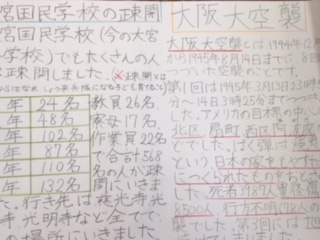 宮国民学校の疎開
宮国民学校(今の大宮
学校)でもたくさんの人
疎開しました。※疎開とは
年 24名
年 48名
年 102名
年 87名
年 110名
年 132名
教員26名、
寮母17名、
作業員22名
で合計568
名の人が疎
開にいきま
た。行き先は慈光寺光
寺光明寺など全てで、
の場所にいきました
大阪大空襲
大阪大空襲とは1944年12月
から1945年8月14日まで、8回
つづいた空襲のことです。
第1回は1945年3月13日23時
分〜14日3時25分までつづき
した。アメリカの目標の中心
北区 扇町 西区阿波座
とでした。ばくだんは
という日本の家をもやすた
につくられたものをおとさ
した。死者3987人 重軽傷
8500人 行方不明678人の
した。第3回には1t